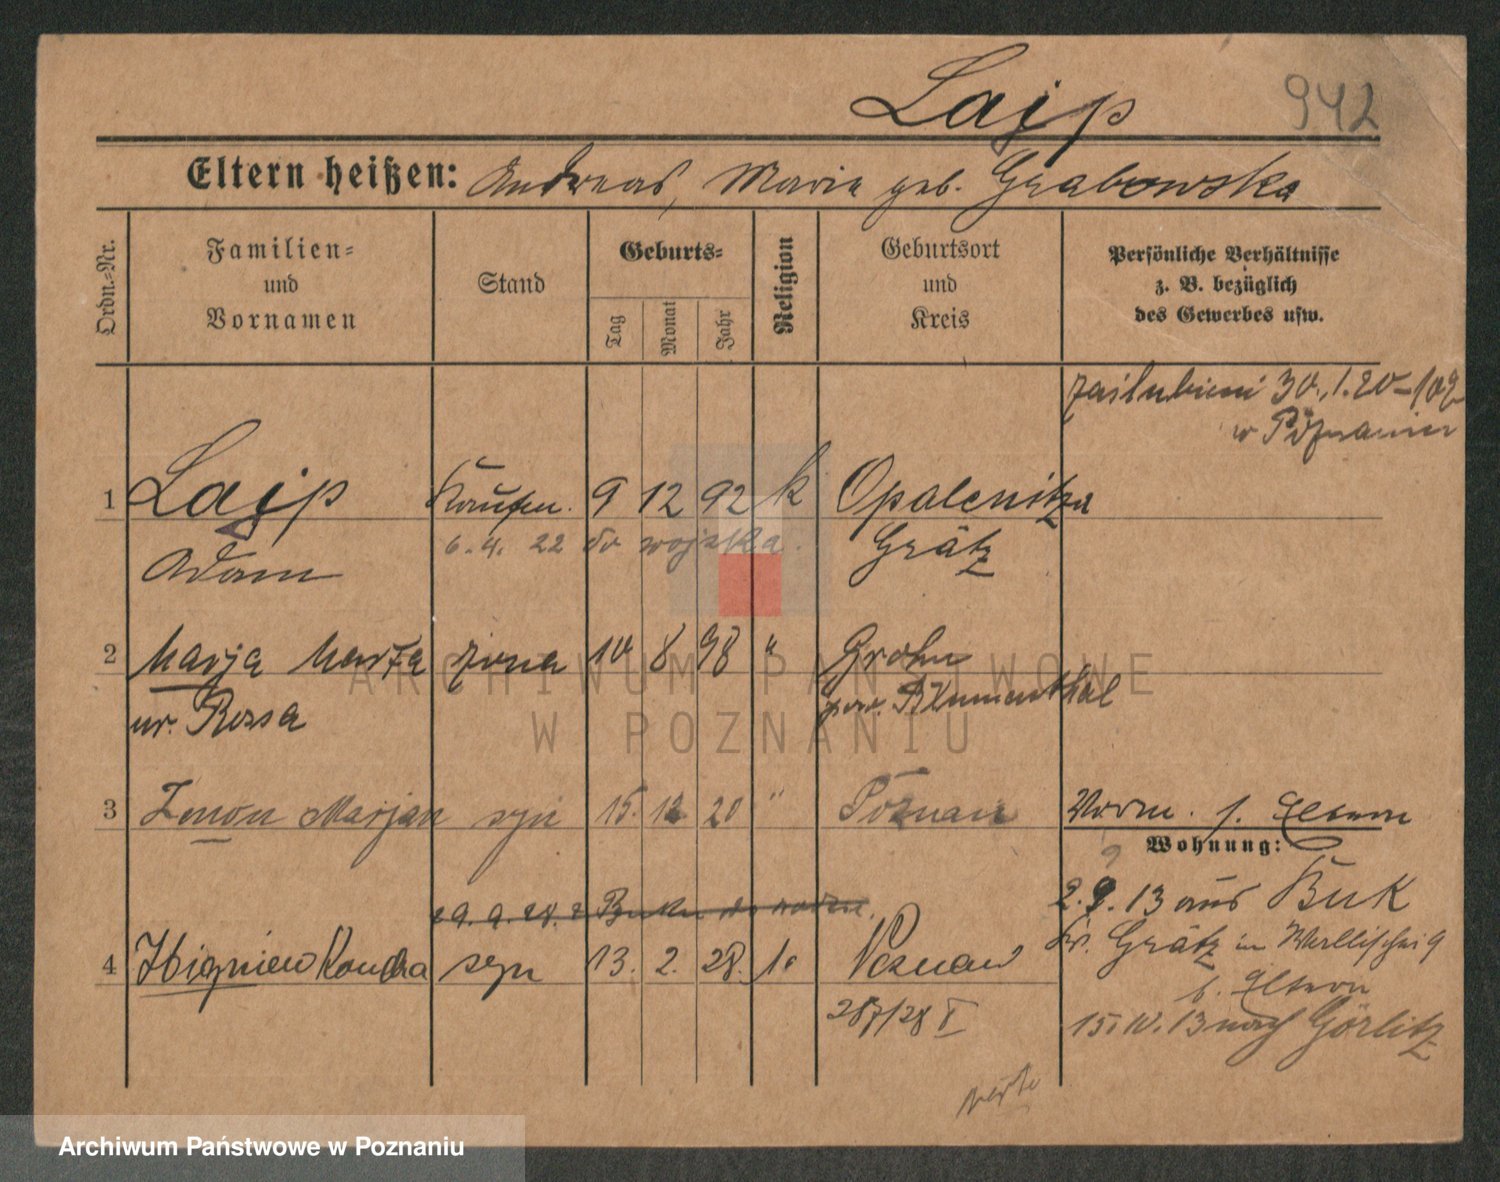 Lajp
942
Eltern heißen: Andreas, Maria geb. Grabowska
Ordn.-Nr.
Familien-
und
Vornamen
Stand
Geburts-
Tag
Monat
Jahr
Religion
Geburtsort
und
Kreis
Persönliche Verhältnisse
z. B. bezüglich
des Gewerbes usw.
zaślubieni 30.1.20
w Poznaniu
1 Lajp Kaufm. 9 12 92 k Opalenitza
6.4.22 do wojska.
Adam Grätz
2 Marja Marta żona 10 8 98 " Grohn
ur. Rossa pow. Blumenthal
3 Zenon Marjan syn 15. 12 20 " Poznań
Vorm. s. Eltern
Wohnung:
2.9.13 aus Buk
Kr. Grätz in Wallischei 9
b. Eltern
15.IV.13 nach Görlitz
4 Zbigniew syn 13. 2. 28. Poznań
287/28 V
verte
ARCHIWUM PAŃSTWOWE
W POZNANIU
Archiwum Państwowe w Poznaniu